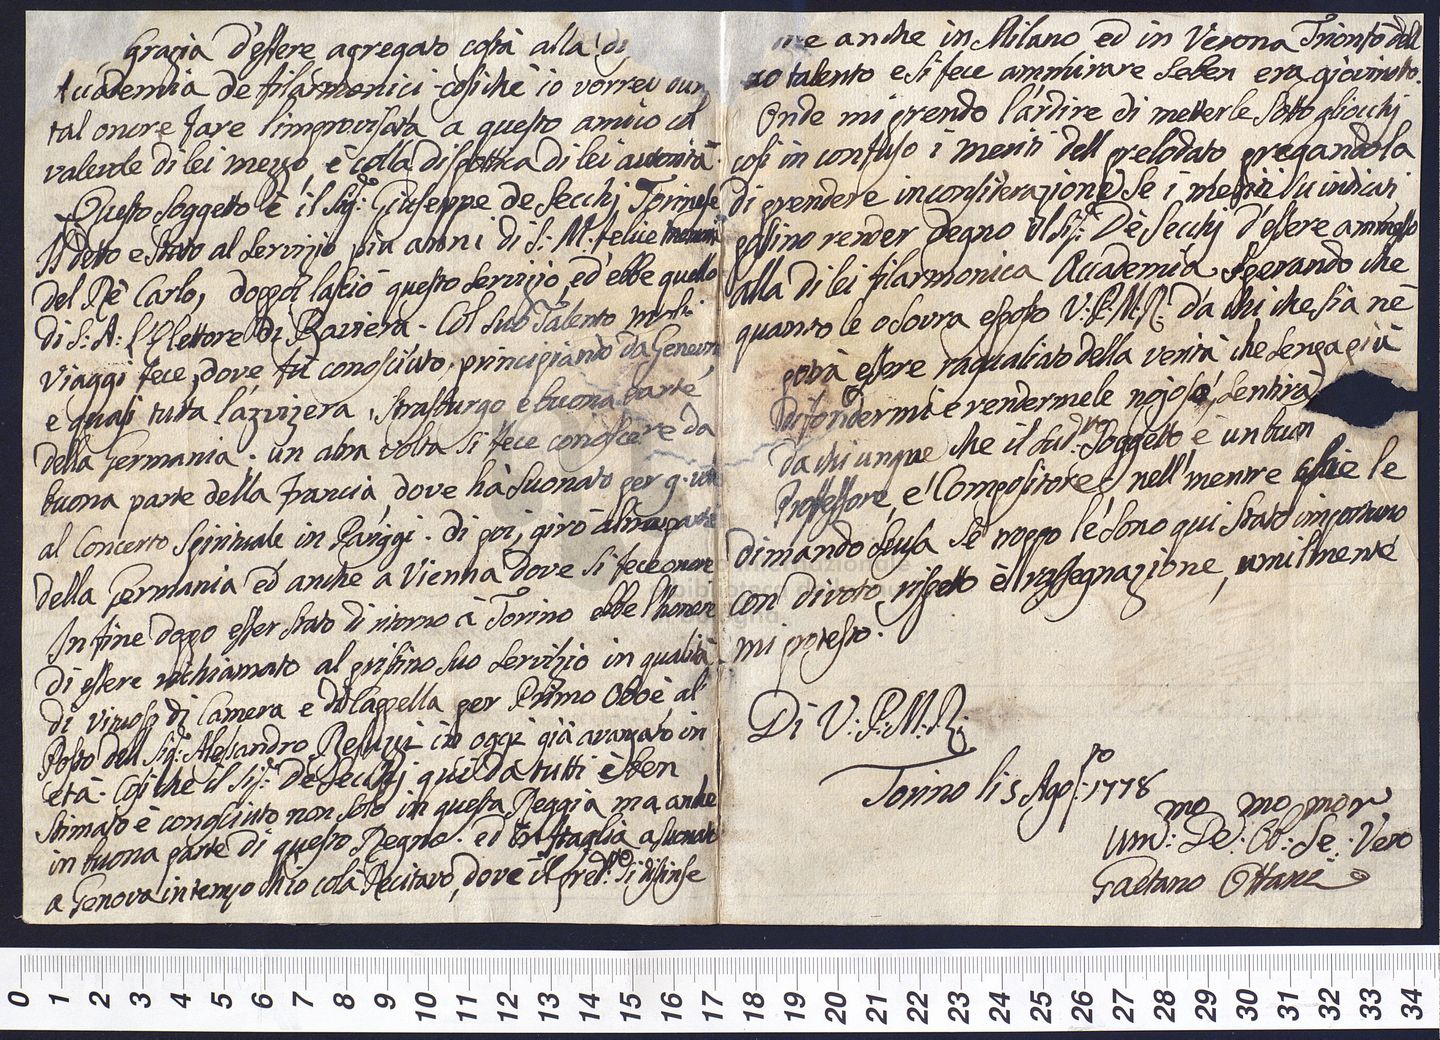 Grazia d'essere agregato costà alla
Accademia de filarmonici cosiche io vorrei
tal onore fare l'improvisata a questo amico col
valevole di lei mezzo, è colla dispottica di lei autorità.
Questo soggetto è il Sig.r Giuseppe de Secchi Torinese
è stato al servizio più anni di S. M. felice memoria
del Rè Carlo, doppoi lasciò questo servizio, ed ebbe quello
di S: A: l'Elettore di Baviera. Col suo Talento molti
viaggi fece, dove fù conosciuto, principiando da Genevra
e quasi tutta lazvizera, Strasburgo e buona parte
della Germania. un altra volta si fece conoscere da
buona parte della Francia dove hà suonato per
al Concerto spirituale in Pariggi. di poi, girò altra parte
della Germania ed anche a Vienna dove si fece onore
In fine dopo esser stato di ritorno à Torino ebbe l'honore
di essere richiamato al pristino suo servizio in qualità
di virtuoso di Camera e di Cappella per Primo Oboè al
Posto dell Sig.r Alessandro Besuzzi in oggi già avanzato in
età. Cosi che il Sig.r De Secchi qui da tutti è ben
stimato è conosciuto non solo in questa Reggia ma anche
in buona parte di questo Regno. ed in Ittaglia a suonato
a Genova in tempo chio colà Recitavo, dove il pred.to si distinse
anche in Milano ed in Verona Trionfò dell
suo talento e si fece ammirare seben era giovinotto.
Onde mi prendo l'ardire di metterle sotto gliocchj
cosi in confuso i meriti dell prelodato pregandola
di prendere inconsiterazione se i meriti su indicati
possino render degno il Sig.r De Secchj d'essere ammesso
alla di lei filarmonica Accademia sperando che
quanto le ò sovra esposto V. P. M. R. da chi che sia nè
potrà essere ragualiato della verità che senza più
diffondermi e rendermele nojoso, sentirà
da chi unque che il sud.to soggetto è un buon
Proffessore, e Compositore, nell mentre che le
dimando scusa se troppo le sono qui stato importuno
con divoto, rispetto è rassegnazione, umilmente
mi protesto.
Di V: P: M: R:
Torino li 5 Agos.to 1778
Um.mo De.mo Ob.mo Se.r Vero
Gaetano Ottani